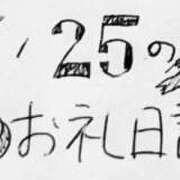 25の
お礼日